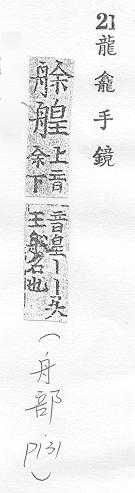 21 龍龕手鏡
艅艎
上音
余下
音皇丨丨吳
王船名也
(舟部 p131)